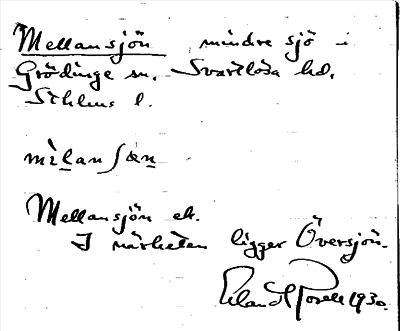 Mellansjön mindre sjö i
Grödinge sn. Svartlösa hd.
Sthlms l.
mèlanʃœn
Mellansjön ek.
I närheten ligger Översjön.
Erland Rosell 1930.